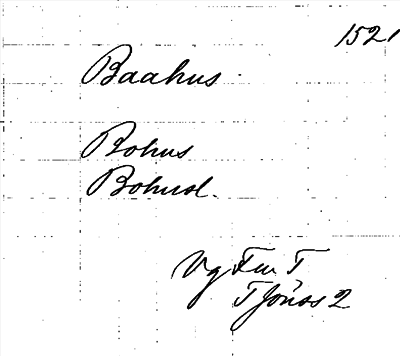 1521
Baahus
Bohus
Bohusl.
Vg Fru T
T Jönås 2